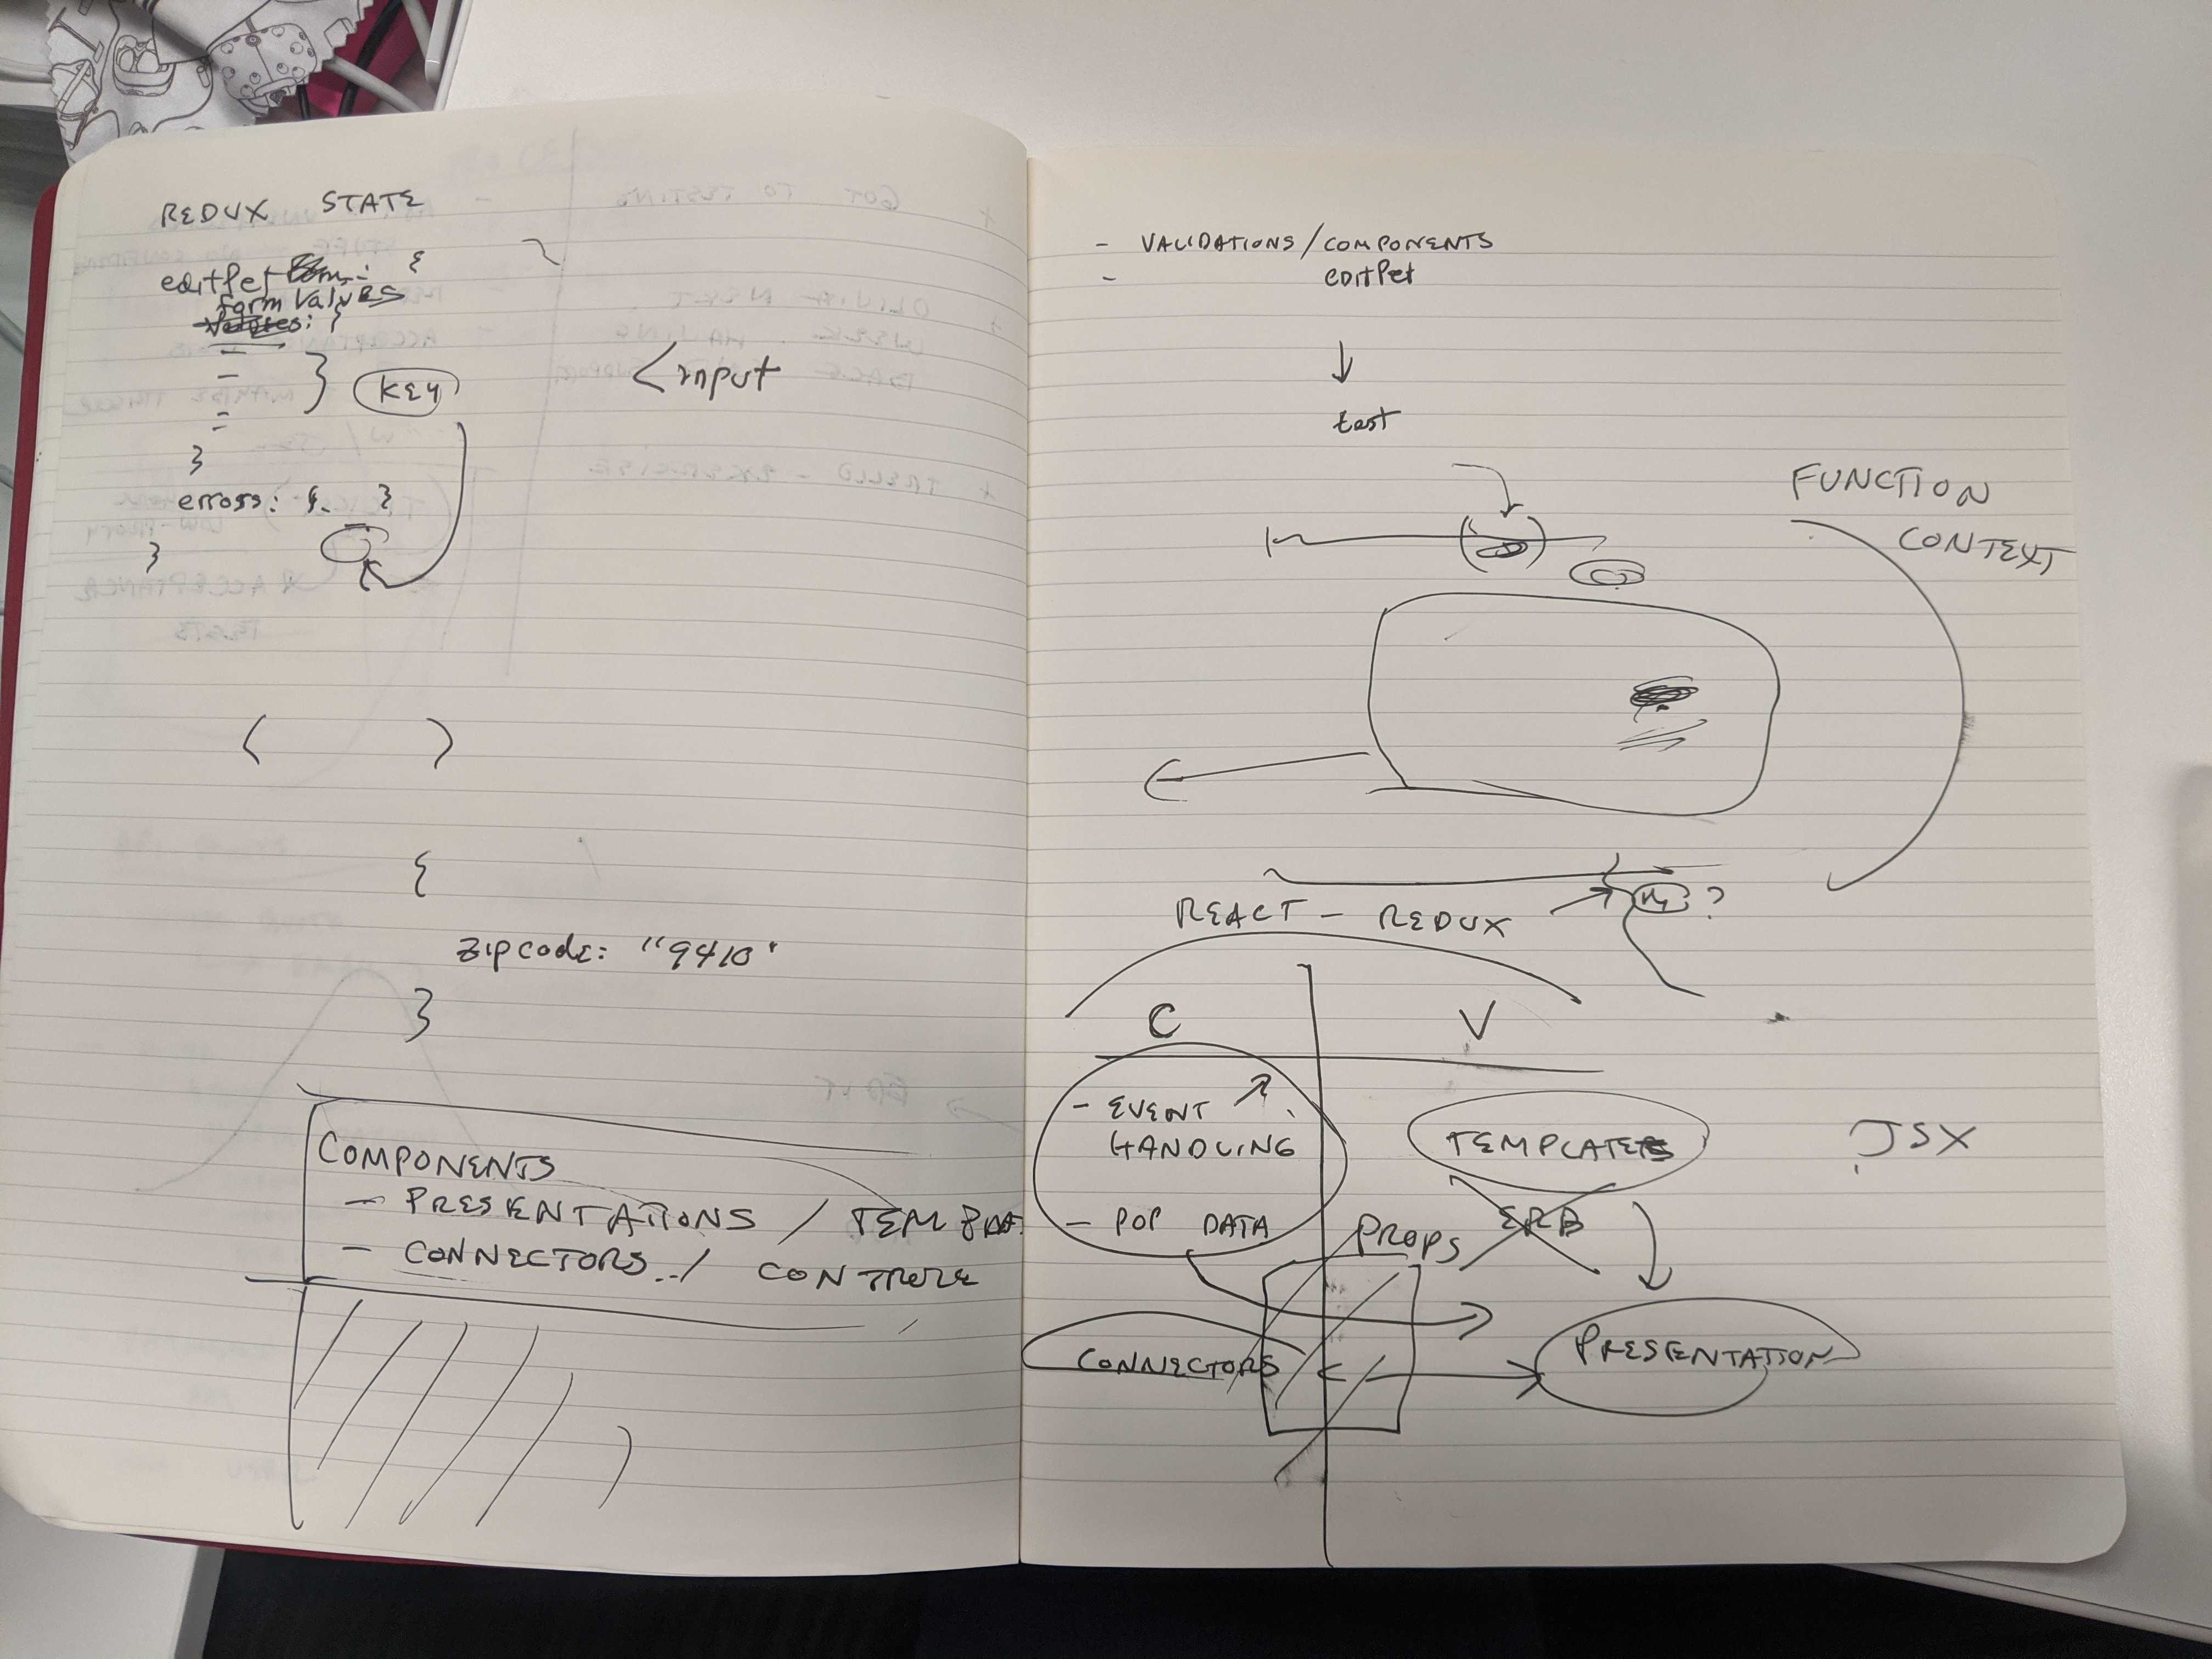 REDUX STATE
editPet : {
form ValuES
: {
-
-
=
} KEY
<input
}
errors: { - }
}
< >
{
zipcode: "9410"
}
COMPONENTS
- PRESENTATIONS / TEMPLAT
- CONNECTORS / CONTROLE
- VALIDATIONS/COMPONENTS
- EDITPet
test
FUNCTION
CONTEXT
REACT - REDUX
?
C V
- EVENT
HANDLING
- POP DATA
TEMPLATES
JSX
PROPS
ERB
CONNECTORS
PRESENTATION